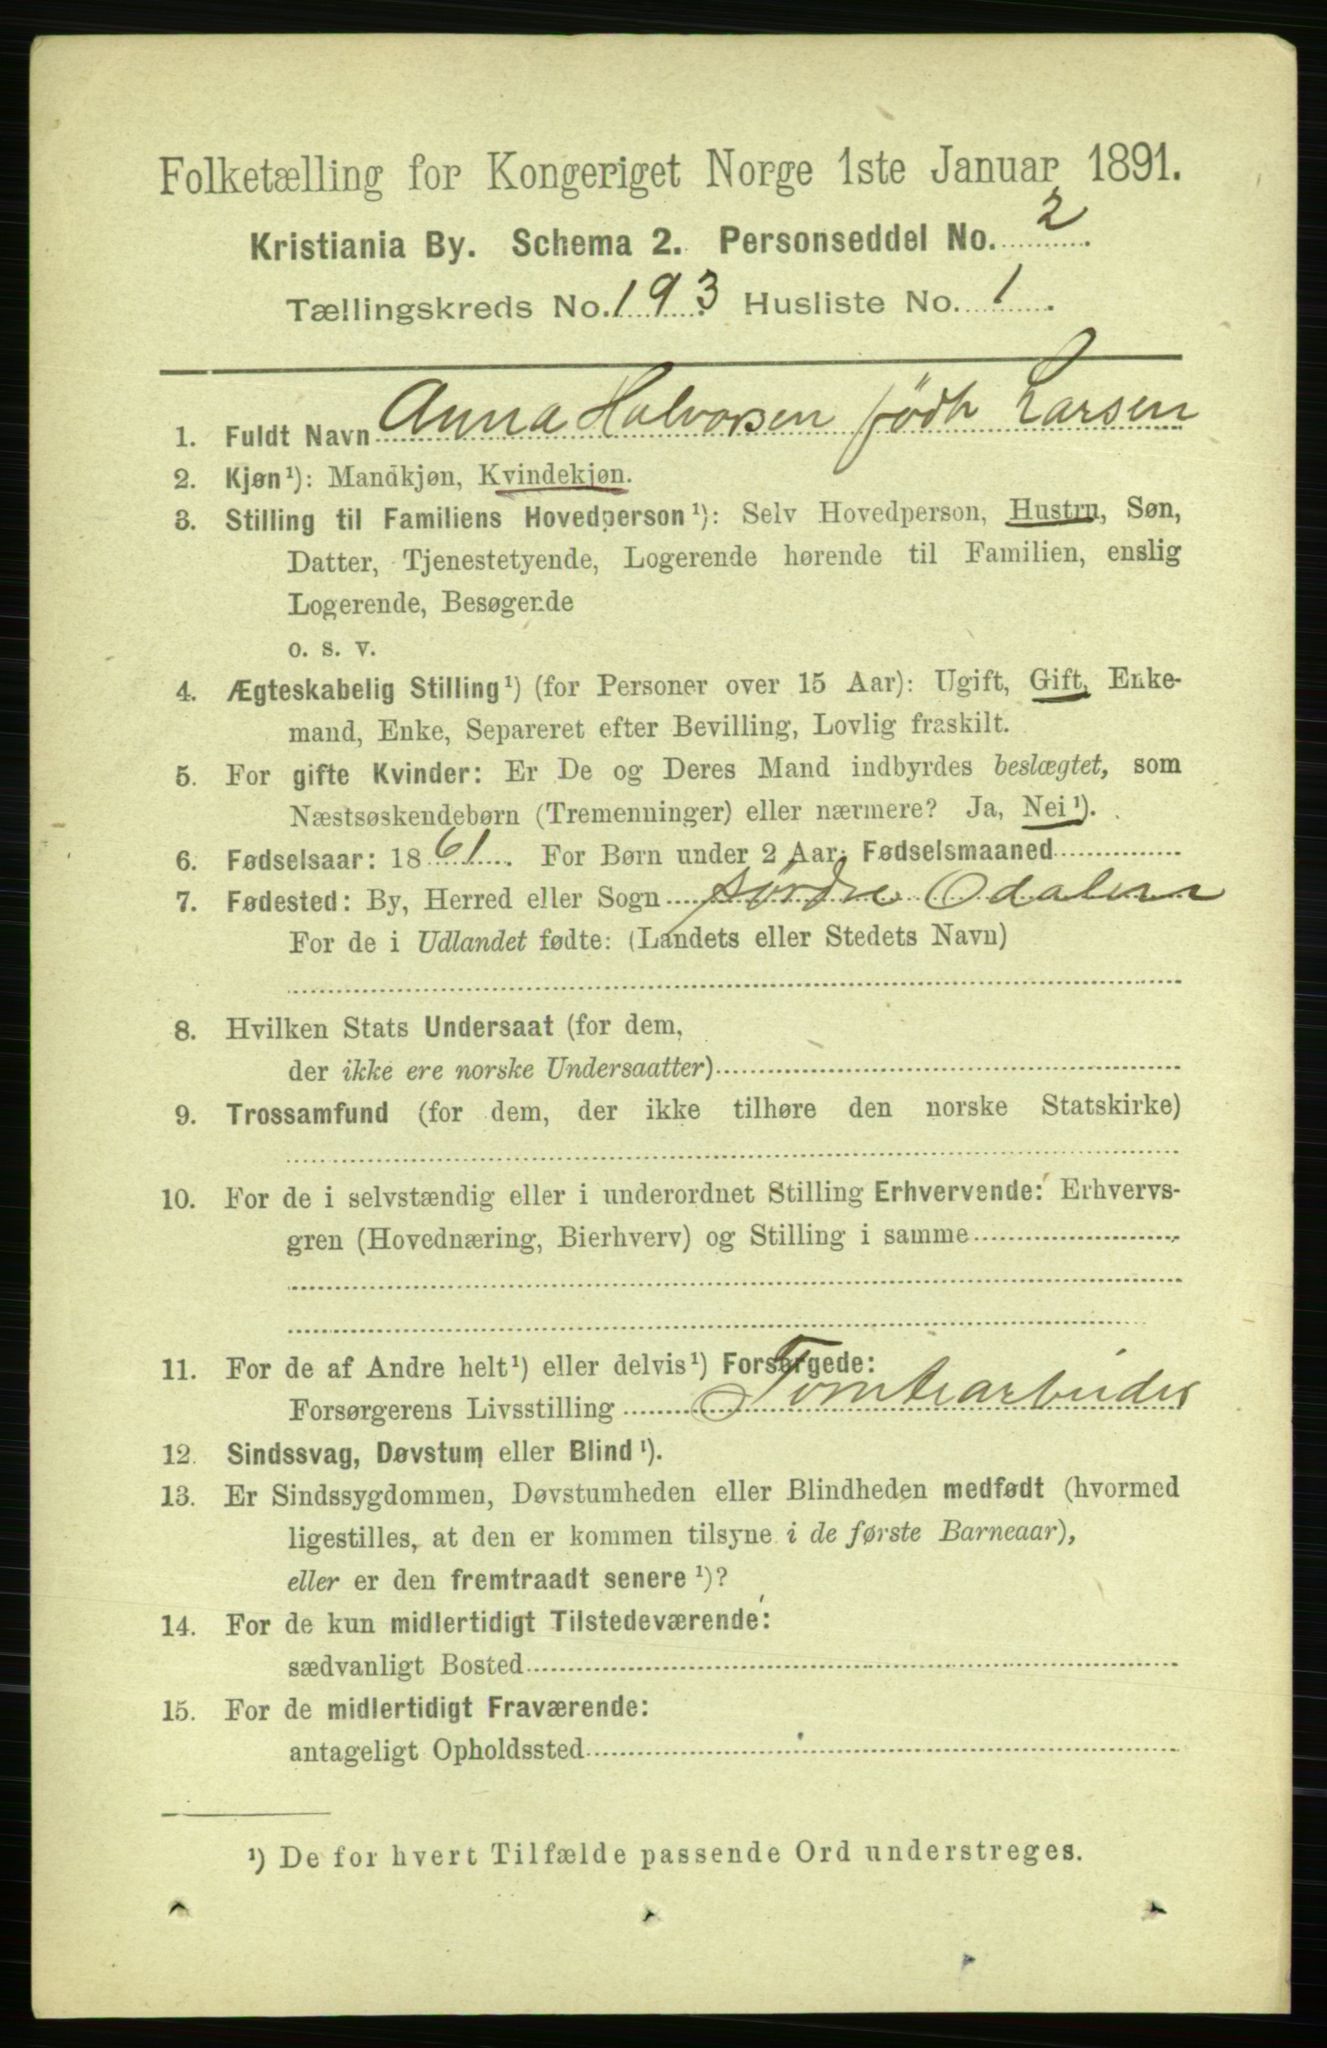 Folketælling for Kongeriget Norge 1ste Januar 1891.
Kristiania By. Schema 2. Personseddel No. 2
Tællingskreds No. 193 Husliste No. 1
1. Fuldt Navn Anna Halvorsen født Larsen
2. Kjøn¹): Mandkjøn, Kvindekjøn.
3. Stilling til Familiens Hovedperson¹): Selv Hovedperson, Hustru, Søn,
Datter, Tjenestetyende, Logerende hørende til Familien, enslig
Logerende, Besøgende
o. s. v.
4. Ægteskabelig Stilling¹) (for Personer over 15 Aar): Ugift, Gift, Enke-
mand, Enke, Separeret efter Bevilling, Lovlig fraskilt.
5. For gifte Kvinder: Er De og Deres Mand indbyrdes beslægtet, som
Næstsøskendebørn (Tremenninger) eller nærmere? Ja, Nei¹).
6. Fødselsaar: 1861. For Børn under 2 Aar: Fødselsmaaned
7. Fødested: By, Herred eller Sogn søndre Odalen
For de i Udlandet fødte: (Landets eller Stedets Navn)
8. Hvilken Stats Undersaat (for dem,
der ikke ere norske Undersaatter)
9. Trossamfund (for dem, der ikke tilhøre den norske Statskirke)
10. For de i selvstændig eller i underordnet Stilling Erhvervende: Erhvervs-
gren (Hovednæring, Bierhverv) og Stilling i samme
11. For de af Andre helt¹) eller delvis¹) Forsørgede:
Forsørgerens Livsstilling Tomtearbeider
12. Sindssvag, Døvstum eller Blind¹).
13. Er Sindssygdommen, Døvstumheden eller Blindheden medfødt (hvormed
ligestilles, at den er kommen tilsyne i de første Barneaar),
eller er den fremtraadt senere¹)?
14. For de kun midlertidigt Tilstedeværende:
sædvanligt Bosted
15. For de midlertidigt Fraværende:
antageligt Opholdssted
¹) De for hvert Tilfælde passende Ord understreges.